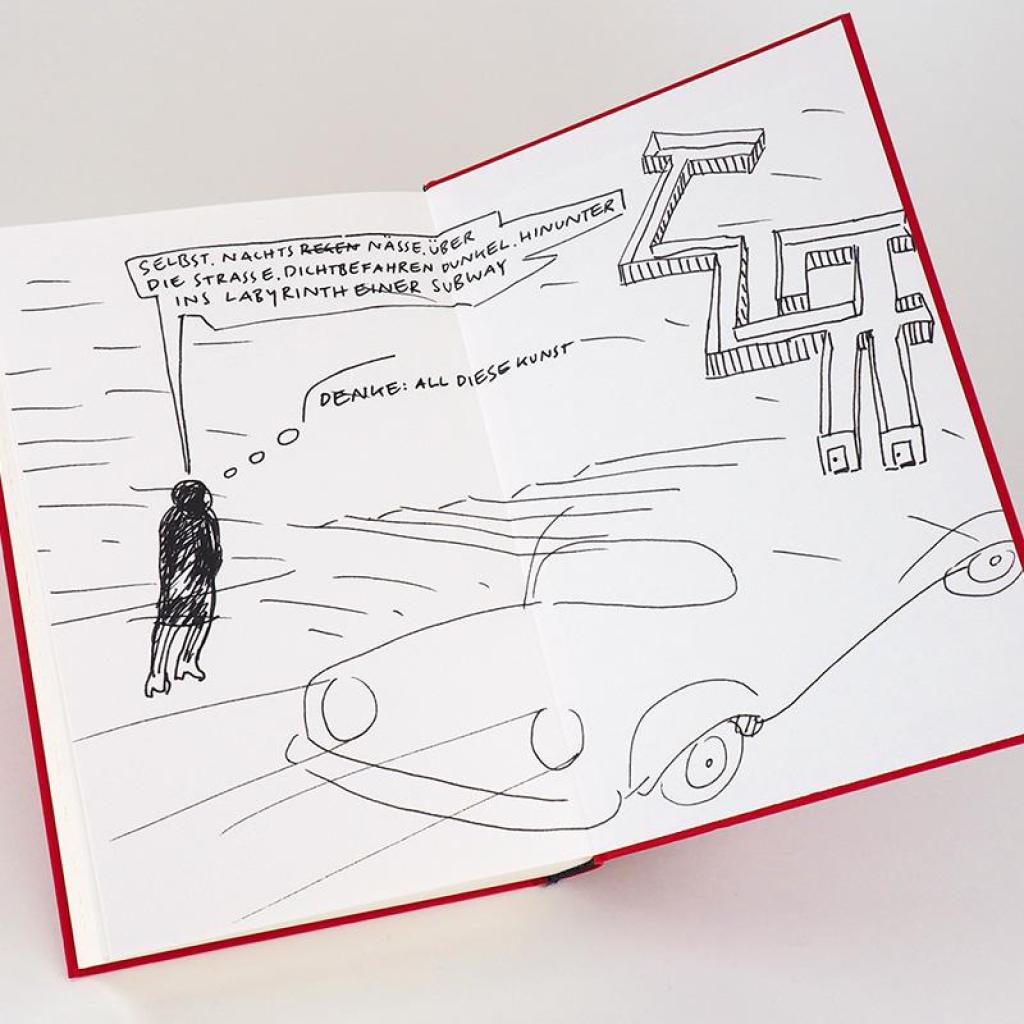 SELBST. NACHTS REGEN NÄSSE. ÜBER
DIE STRASSE. DICHTBEFAHREN DUNKEL. HINUNTER
INS LABYRINTH EINER SUBWAY
DENKE: ALL DIESE KUNST